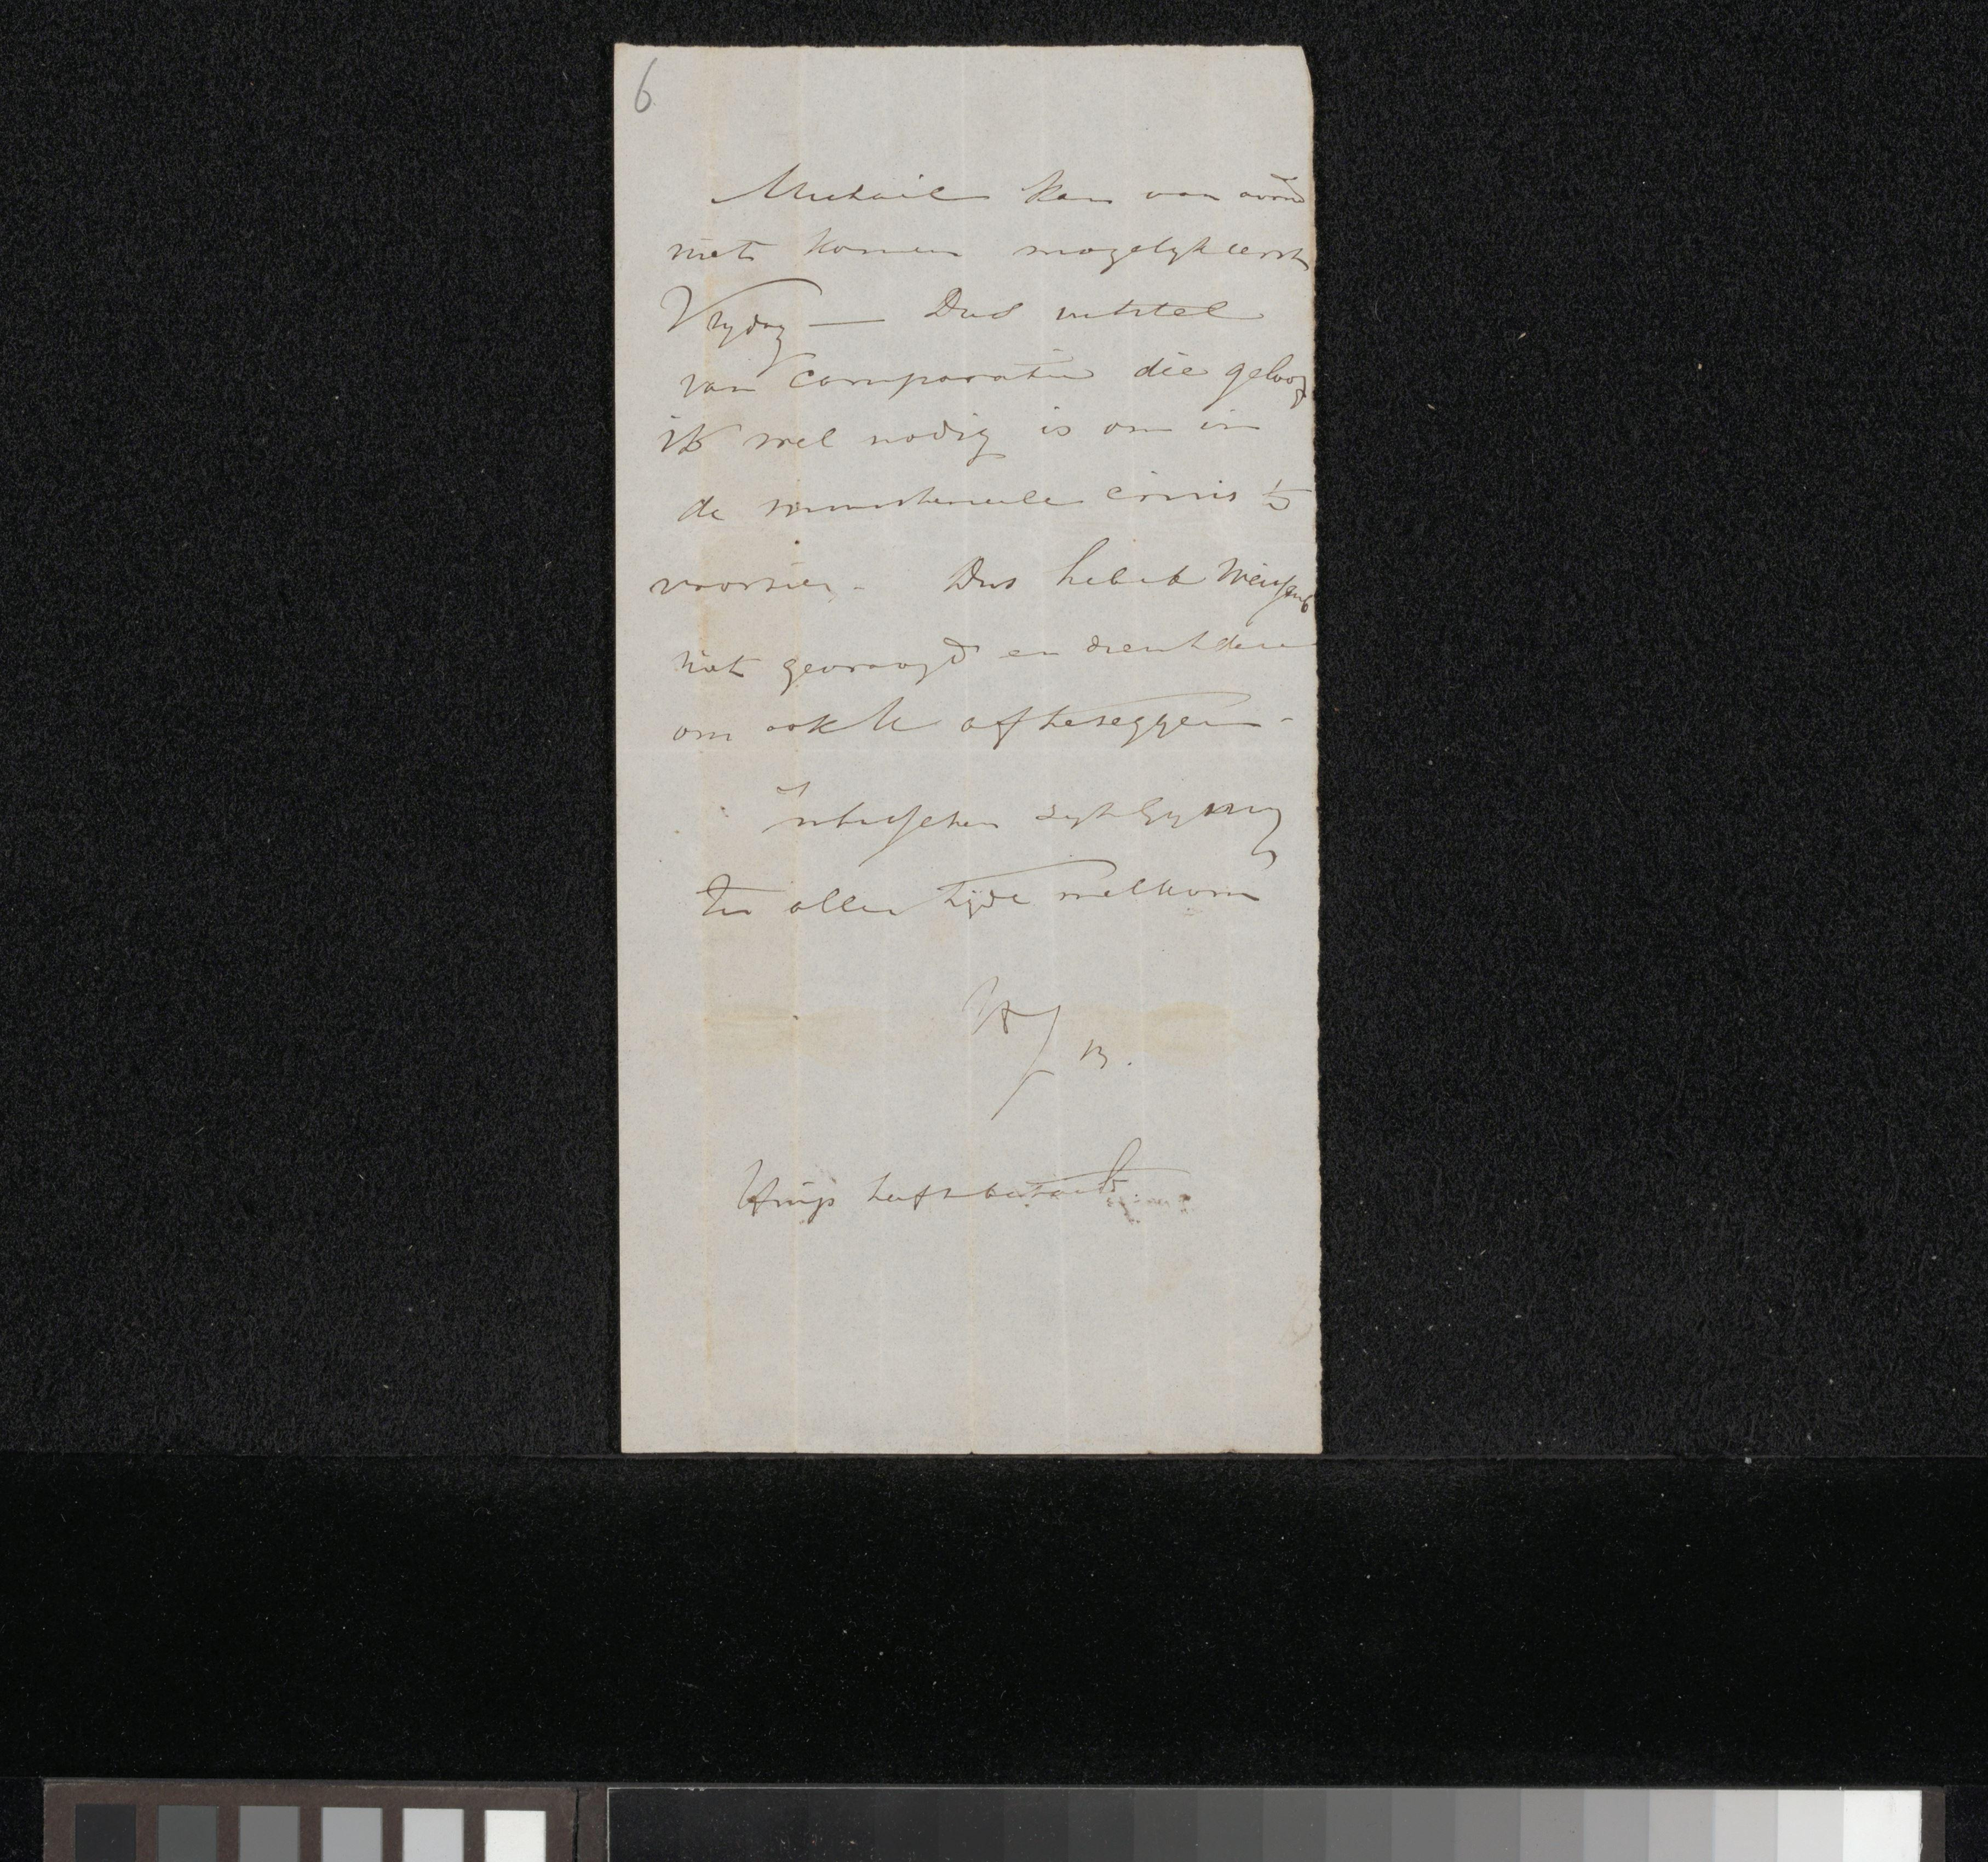 6
Michaël kan van avond
niet komen mogelyk eerst
Vrydag — Dus uitstel
van comparatie die geloof
ik wel nodig is om in
de ministerieele crisis te
voorzien. Dus heb ik
niet gevraagd en dient deze
om ook U afteseggen -
Intusschen zyt Gy my
ten allen tijde welkom
B.
heeft betaald.